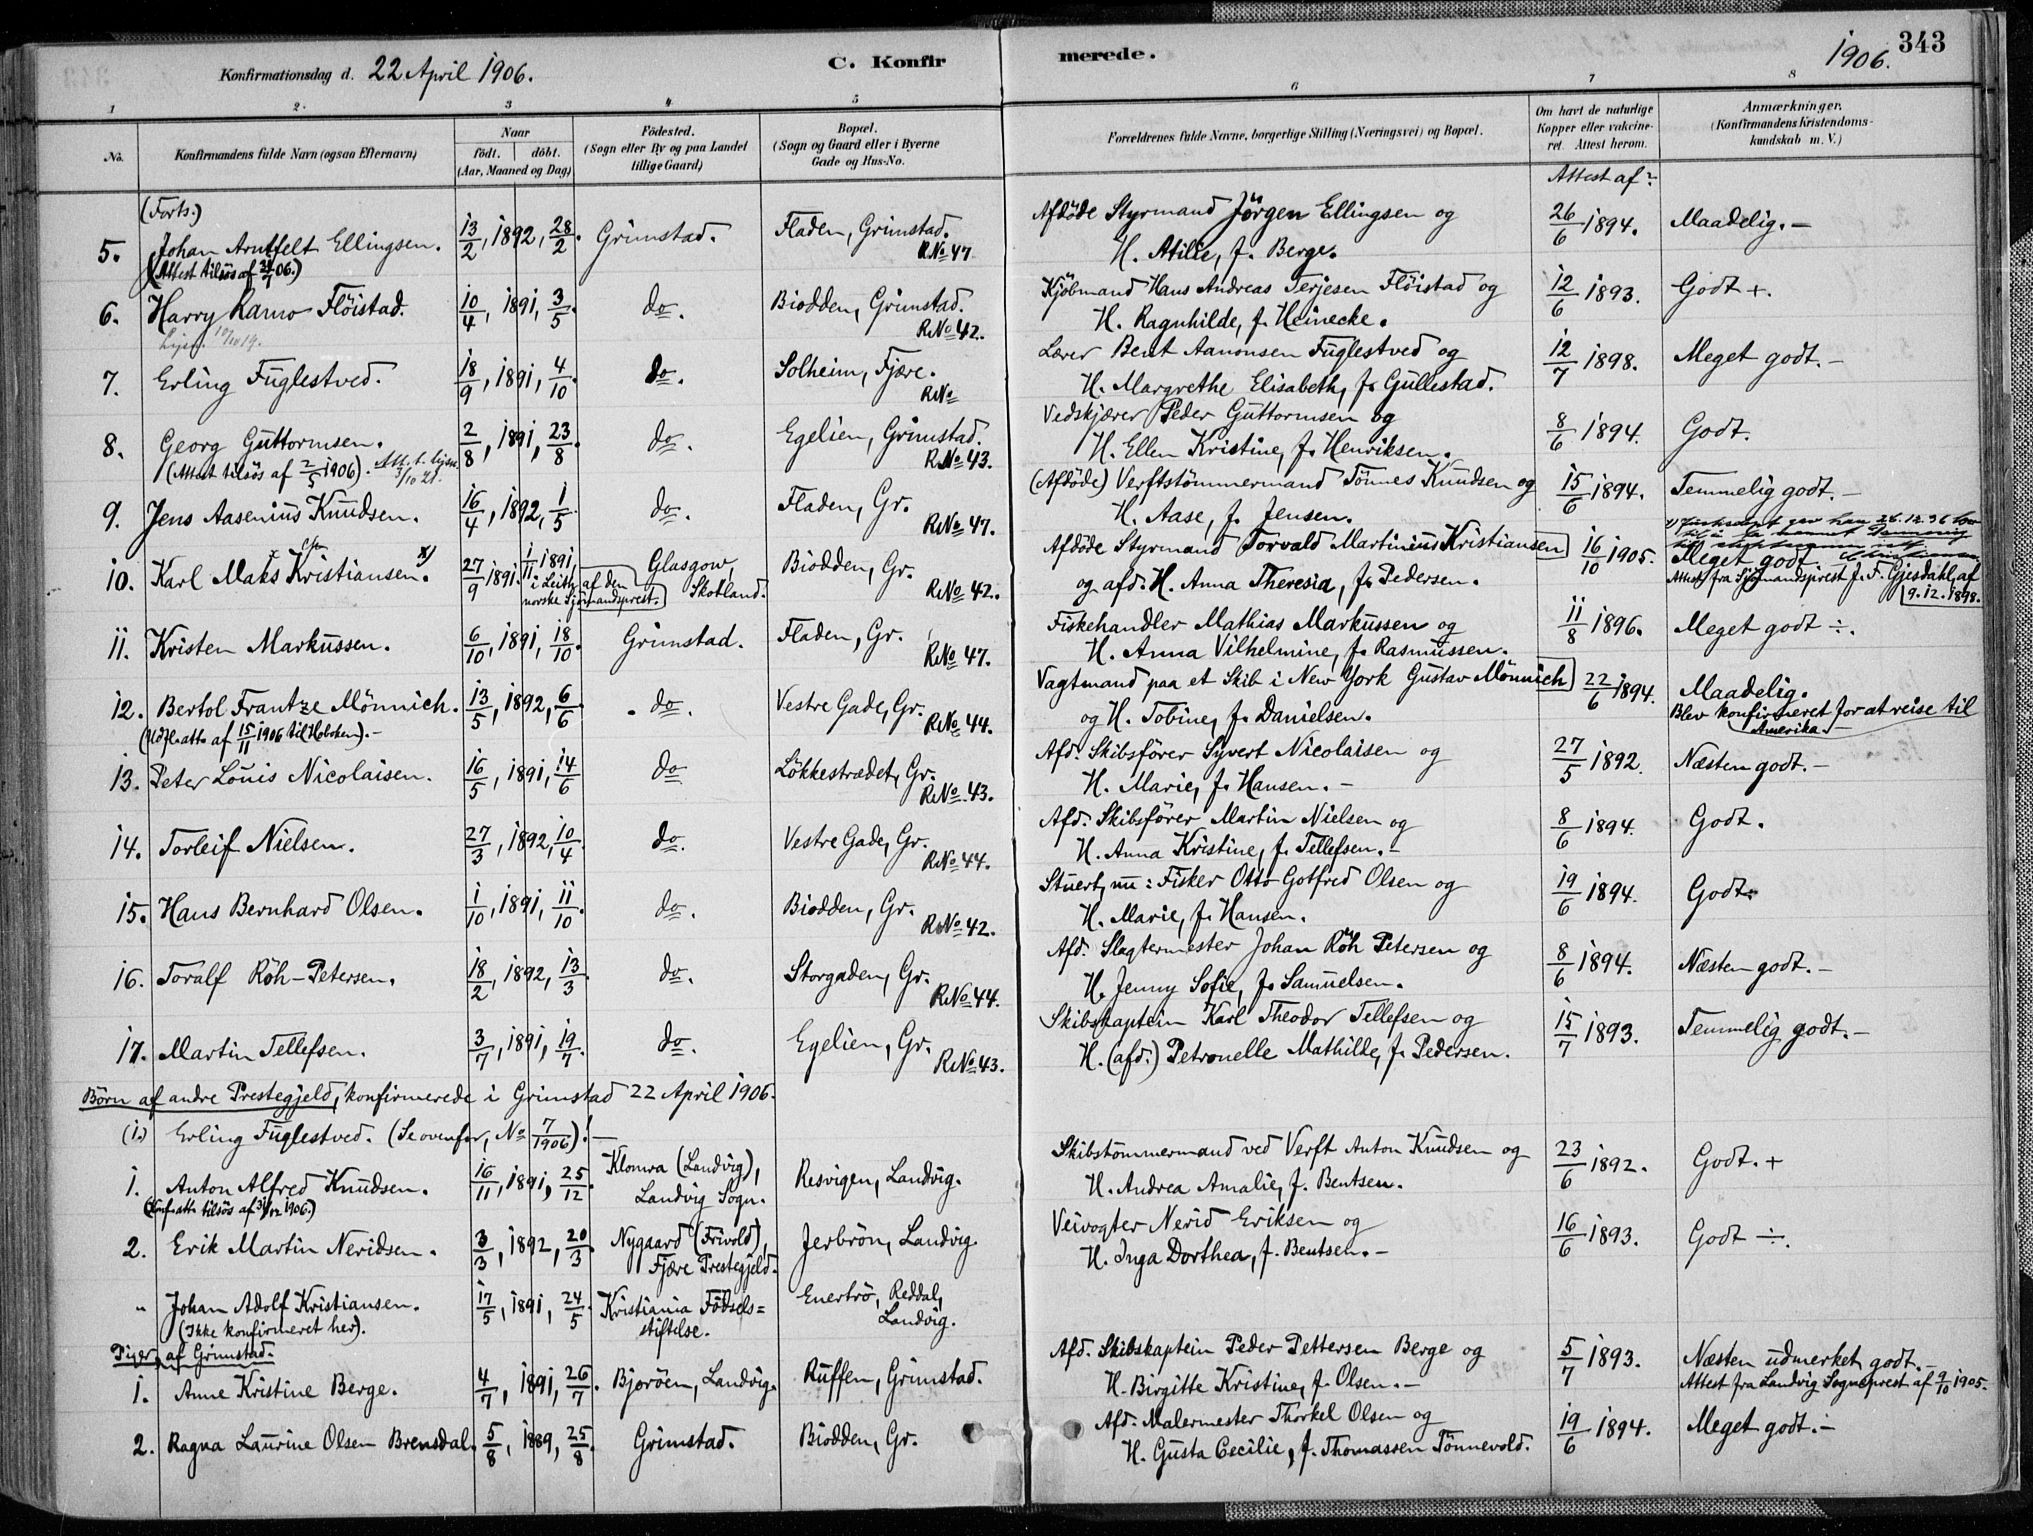 Konfirmationsdag d. 22 April 1906.
C. Konfirmerede.
1906.
343
1 2 3 4 5 6 7 8
No.
Konfirmandens fulde Navn (ogsaa Efternavn)
Naar
födt. döbt.
(Aar, Maaned og Dag)
Födested.
(Sogn eller By og paa Landet
tillige Gaard)
Bopæl.
(Sogn og Gaard eller i Byerne
Gade og Hus-No.
Forældrenes fulde Navne, borgerlige Stilling (Næringsvei) og Bopæl.
Om havt de naturlige
Kopper eller vakcine-
ret. Attest herom.
Anmærkninger.
(Konfirmandens Kristendoms-
kundskab m. V.)
Attest af:
(Forts.)
5. Johan Arntfelt Ellingsen. 13/2, 1892, 28/2. Grimstad. Fladen, Grimstad. Afdöde Styrmand Jörgen Ellingsen og 26/6 1894. Maadelig.-
(Attest tilsös af 06.) R.No 47 H. Atilie, f. Berge.
6. Harry Ramo Flöistad. 10/4, 1891, 3/5. do. Biodden, Grimstad. Kjöbmand Hans Andreas Terjesen Flöistad og 12/6 1893. Godt +.
R.No 42. H. Ragnhilde, f. Heinecke.
7. Erling Fuglestved. 18/9, 1891, 4/10. do. Solheim, Fjære. Lærer Bent Aanonsen Fuglestved og 12/7 1898. Meget godt.-
R.No H. Margrethe Elisabeth, f. Gullestad.
8. Georg Guttormsen. 2/8, 1891, 23/8. do. Egelien, Grimstad. Vedskjærer Peder Guttormsen og 8/6 1894. Godt.
(Attest tilsös af 2/5 1906). R.No 43. H. Ellen Kristine, f. Henriksen.
9. Jens Aasenius Knudsen. 16/4, 1892, 1/5. do. Fladen, Gr. (Afdöde) Verftstömmermand Tönnes Knudsen og 15/6 1894. Temmelig godt.-
R.No 47. H. Aase, f. Jensen.
10. Karl Maks Kristiansen. x) 27/9 1891. 1/11 1891, i Leith af den norske Sjömandsprest. Glasgow, Skotland. Biodden, Gr. Afdöde Styrmand Torvald Martinius Kristiansen 16/10 1905. Meget godt.
R.No 42. og afd. H. Anna Theresia, f. Pedersen. Attest fra Sjömandsprest J. F. Gjesdahl, af 9.12.1898.
11. Kristen Markussen. 6/10, 1891, 18/10. Grimstad. Fladen, Gr. Fiskehandler Mathias Markussen og 11/8 1896. Meget godt ÷.
R.No 47. H. Anna Vilhelmine, f. Rasmussen.
12. Bertol Frantze Mönnich. 13/5, 1892, 6/6. do. Vestre Gade, Gr. Vagtmand paa et Skib i New York Gustav Mönnich 22/6 1894. Maadelig.
(Udfl.att. af 15/11 1906 til Hoboken).- R.No 44. og H. Tobine, f. Danielsen. Blev konfirmeret for at reise til Amerika.-
13. Peter Louis Nicolaisen. 16/5, 1891, 14/6 do Lökkestrædet, Gr. Afd. Skibsförer Syvert Nicolaisen og 27/5 1892. Næsten godt.-
R.No 43. H. Marie, f. Hansen.-
14. Torleif Nielsen. 27/3, 1892, 10/4. do. Vestre Gade, Gr. Afd. Skibsförer Martin Nielsen og 8/6 1894. Godt.
R.No 44. H. Anna Kristine, f. Tellefsen.-
15. Hans Bernhard Olsen. 1/10, 1891, 11/10. do. Biodden, Gr. Stuert, nu: Fisker Otto Gotfred Olsen og 19/6 1894. Godt.
R.No 42. H. Marie, f. Hansen.
16. Toralf Röh-Petersen. 18/2, 1892, 13/3. do. Storgaden, Gr. Afd. Slagtermester Johan Röh Petersen og 8/6 1894. Næsten godt.-
R.No 44. H. Jenny Sofie, f. Samuelsen.
17. Martin Tellefsen. 3/7, 1891, 19/7. do. Egelien, Gr. Skibskaptein Karl Theodor Tellefsen og 15/7 1893. Temmelig godt.-
R.No 43. H. (afd.) Petronelle Mathilde, f. Pedersen.
Börn af andre Prestegjeld, konfirmerede i Grimstad 22 April 1906.
(1.) Erling Fuglestved. (Se ovenfor, No 7/1906)!-
1. Anton Alfred Knudsen. 16/11, 1891, 25/12. Klomra (Landvig), Landvig Sogn. Resvigen, Landvig. Skibstömmermand ved Verft Anton Knudsen og 23/6 1892. Godt.+
(Konf.att. tilsös af 31/12 1906.) H. Andrea Amalie, f. Bentsen.
2. Erik Martin Neridsen. 3/3, 1892, 20/3. Nygaard (Frivold), Fjære Prestegjeld. Jerbrön, Landvig Veivogter Nerid Eriksen og 16/6 1893. Godt ÷.
H. Inga Dorthea, f. Bentsen.-
" Johan Adolf Kristiansen. 17/5, 1891, 24/5. Kristiania Födsels=stiftelse. Enertrö, Reddal, Landvig.
(Ikke konfirmeret her).
Piger af Grimstad.
1. Anne Kristine Berge. 4/7, 1891, 26/7. Bjoröen, Landvig. Ruffen, Grimstad. Afd. Skibskaptein Peder Pettersen Berge og 5/7 1893. Næsten udmerket godt.-
H. Birgitte Kristine, f. Olsen.- Attest fra Landvig Sogneprest af 9/10 1905.
2. Ragna Laurine Olsen Brensdal. 5/8, 1889, 25/8. Grimstad. Biodden, Gr. Afd. Malermester Thorkel Olsen og 19/6 1894. Meget godt.÷
H. Gusta Cecilie, f. Thomassen Tönnevold.